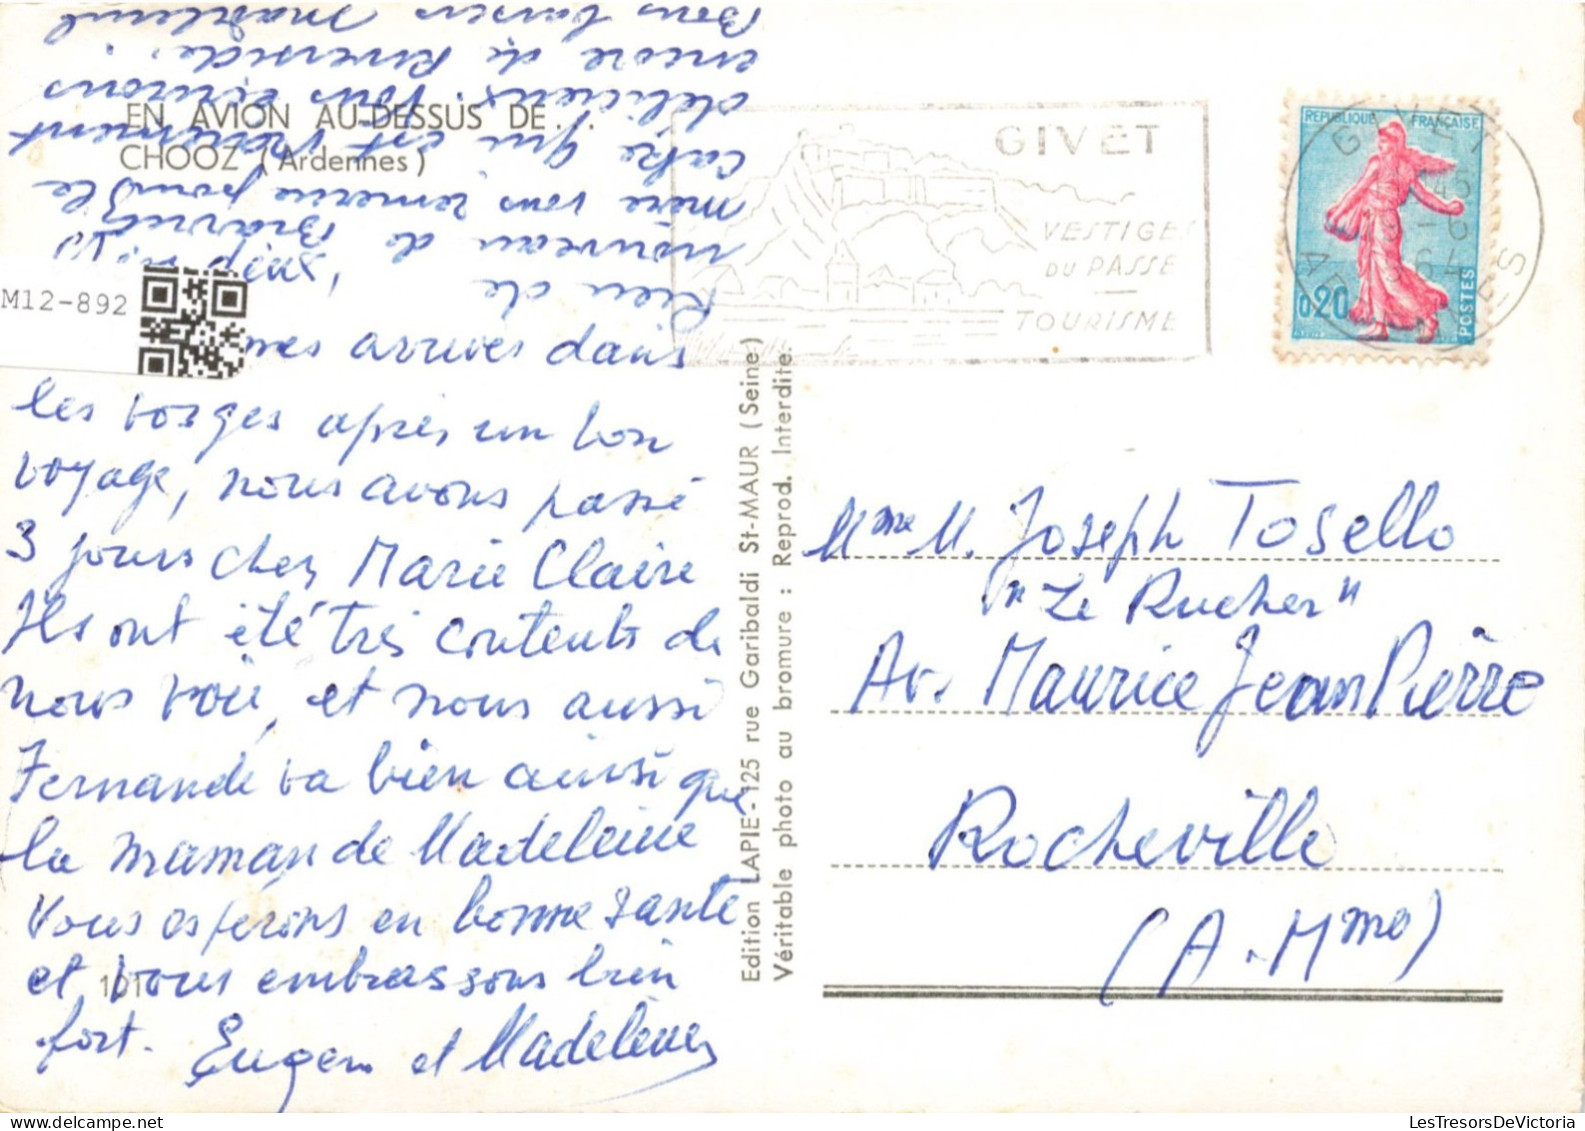 EN AVION AU-DESSUS DE...
CHOOZ (Ardennes)
M12-892
mes arrives dans
les vosges après un bon
voyage, nous avons passé
3 jours chez Marie Claire
Ils ont été très contents de
nous voir, et nous aussi
Fernande va bien ainsi que
la maman de Madeleine
Vous esperons en bonne sante
et vous embrassons bien
fort.
Eugene et Madeleine
101
Rien de
nouveau de
mere vous remercie pour le
cake qui est vraiment
délicieux. Vous écrirons
encore de Riverside.
Bons baisers
Edition LAPIE - 125 rue Garibaldi St-MAUR (Seine)
Véritable photo au bromure : Reprod. Interdite.
GIVET
VESTIGES
DU PASSE
TOURISME
REPUBLIQUE FRANÇAISE
0,20
POSTES
GIVET
Mme M. Joseph Tosello
"Le Rucher"
Av. Maurice Jean Pierre
Rocheville
(A. Mmes)
LesTresorsDeVictoria